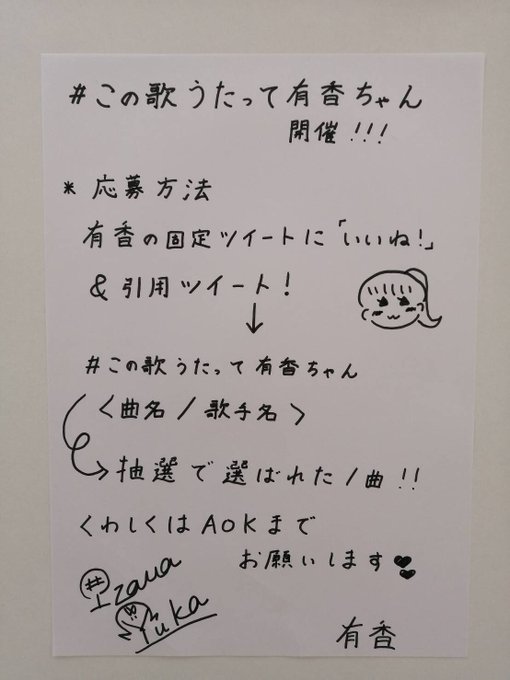 #この歌うたって有香ちゃん
開催!!!
* 応募方法
有香の固定ツイートに「いいね!」
& 引用ツイート!
↓
#この歌うたって有香ちゃん
〈曲名/歌手名〉
抽選で選ばれた1曲!!
くわしくはAOKまで
お願いします
#Izawa
Yuka
有香